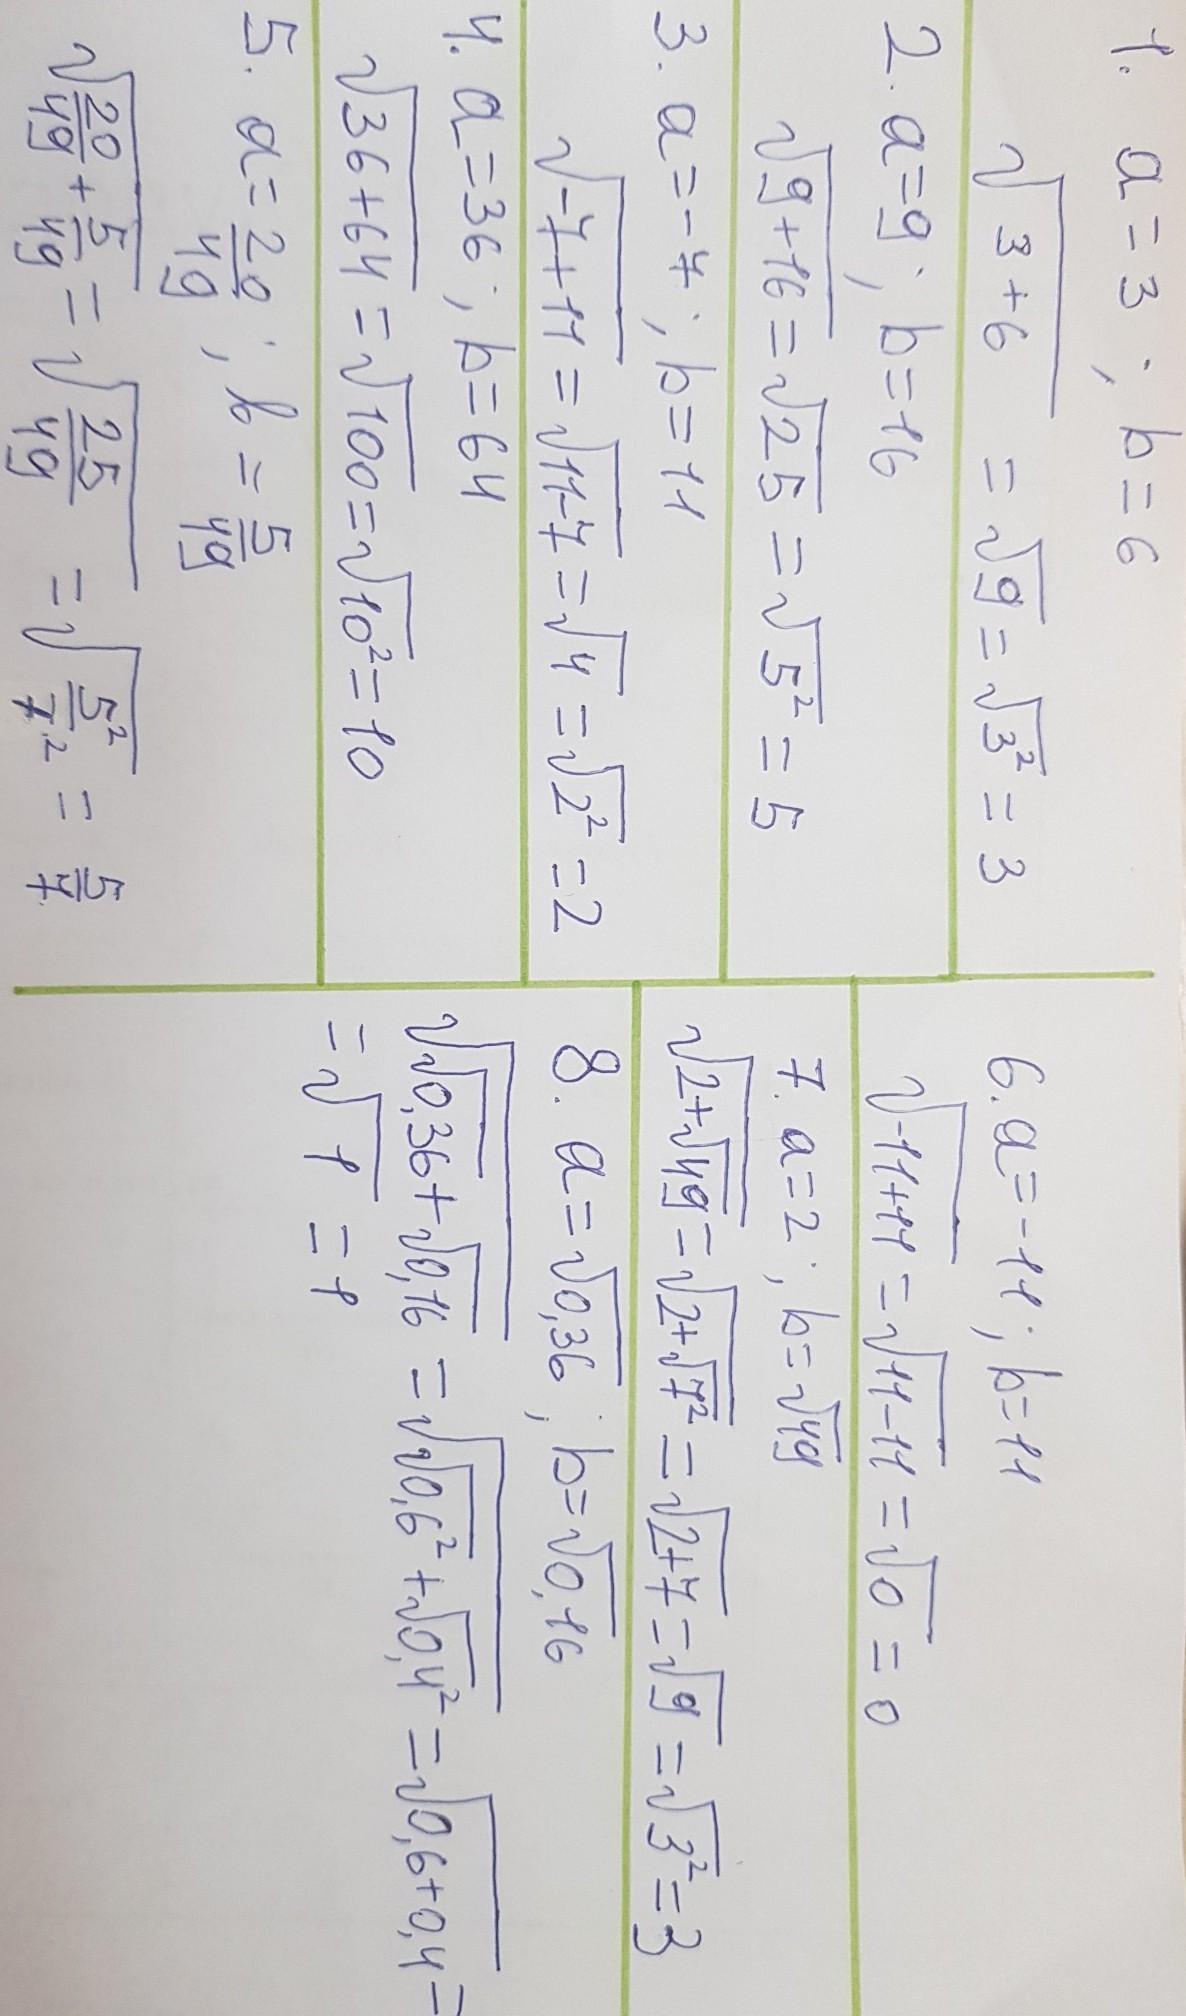 1. a=3; b=6
√(3+6) = √9 = √3² = 3
2. a=9; b=16
√(9+16) = √25 = √5² = 5
3. a=-7; b=11
√(-7+11) = √(11-7) = √4 = √2² = 2
4. a=36; b=64
√(36+64) = √100 = √10² = 10
5. a=20/49; b=5/49
√(20/49+5/49) = √(25/49) = √(5²/7²) = 5/7
6. a=-11; b=11
√(-11+11) = √(11-11) = √0 = 0
7. a=2; b=√49
√(2+√49) = √(2+√7²) = √(2+7) = √9 = √3² = 3
8. a=√0,36; b=√0,16
√(√0,36+√0,16) = √(√0,6²+√0,4²) = √(0,6+0,4) =
= √1 = 1